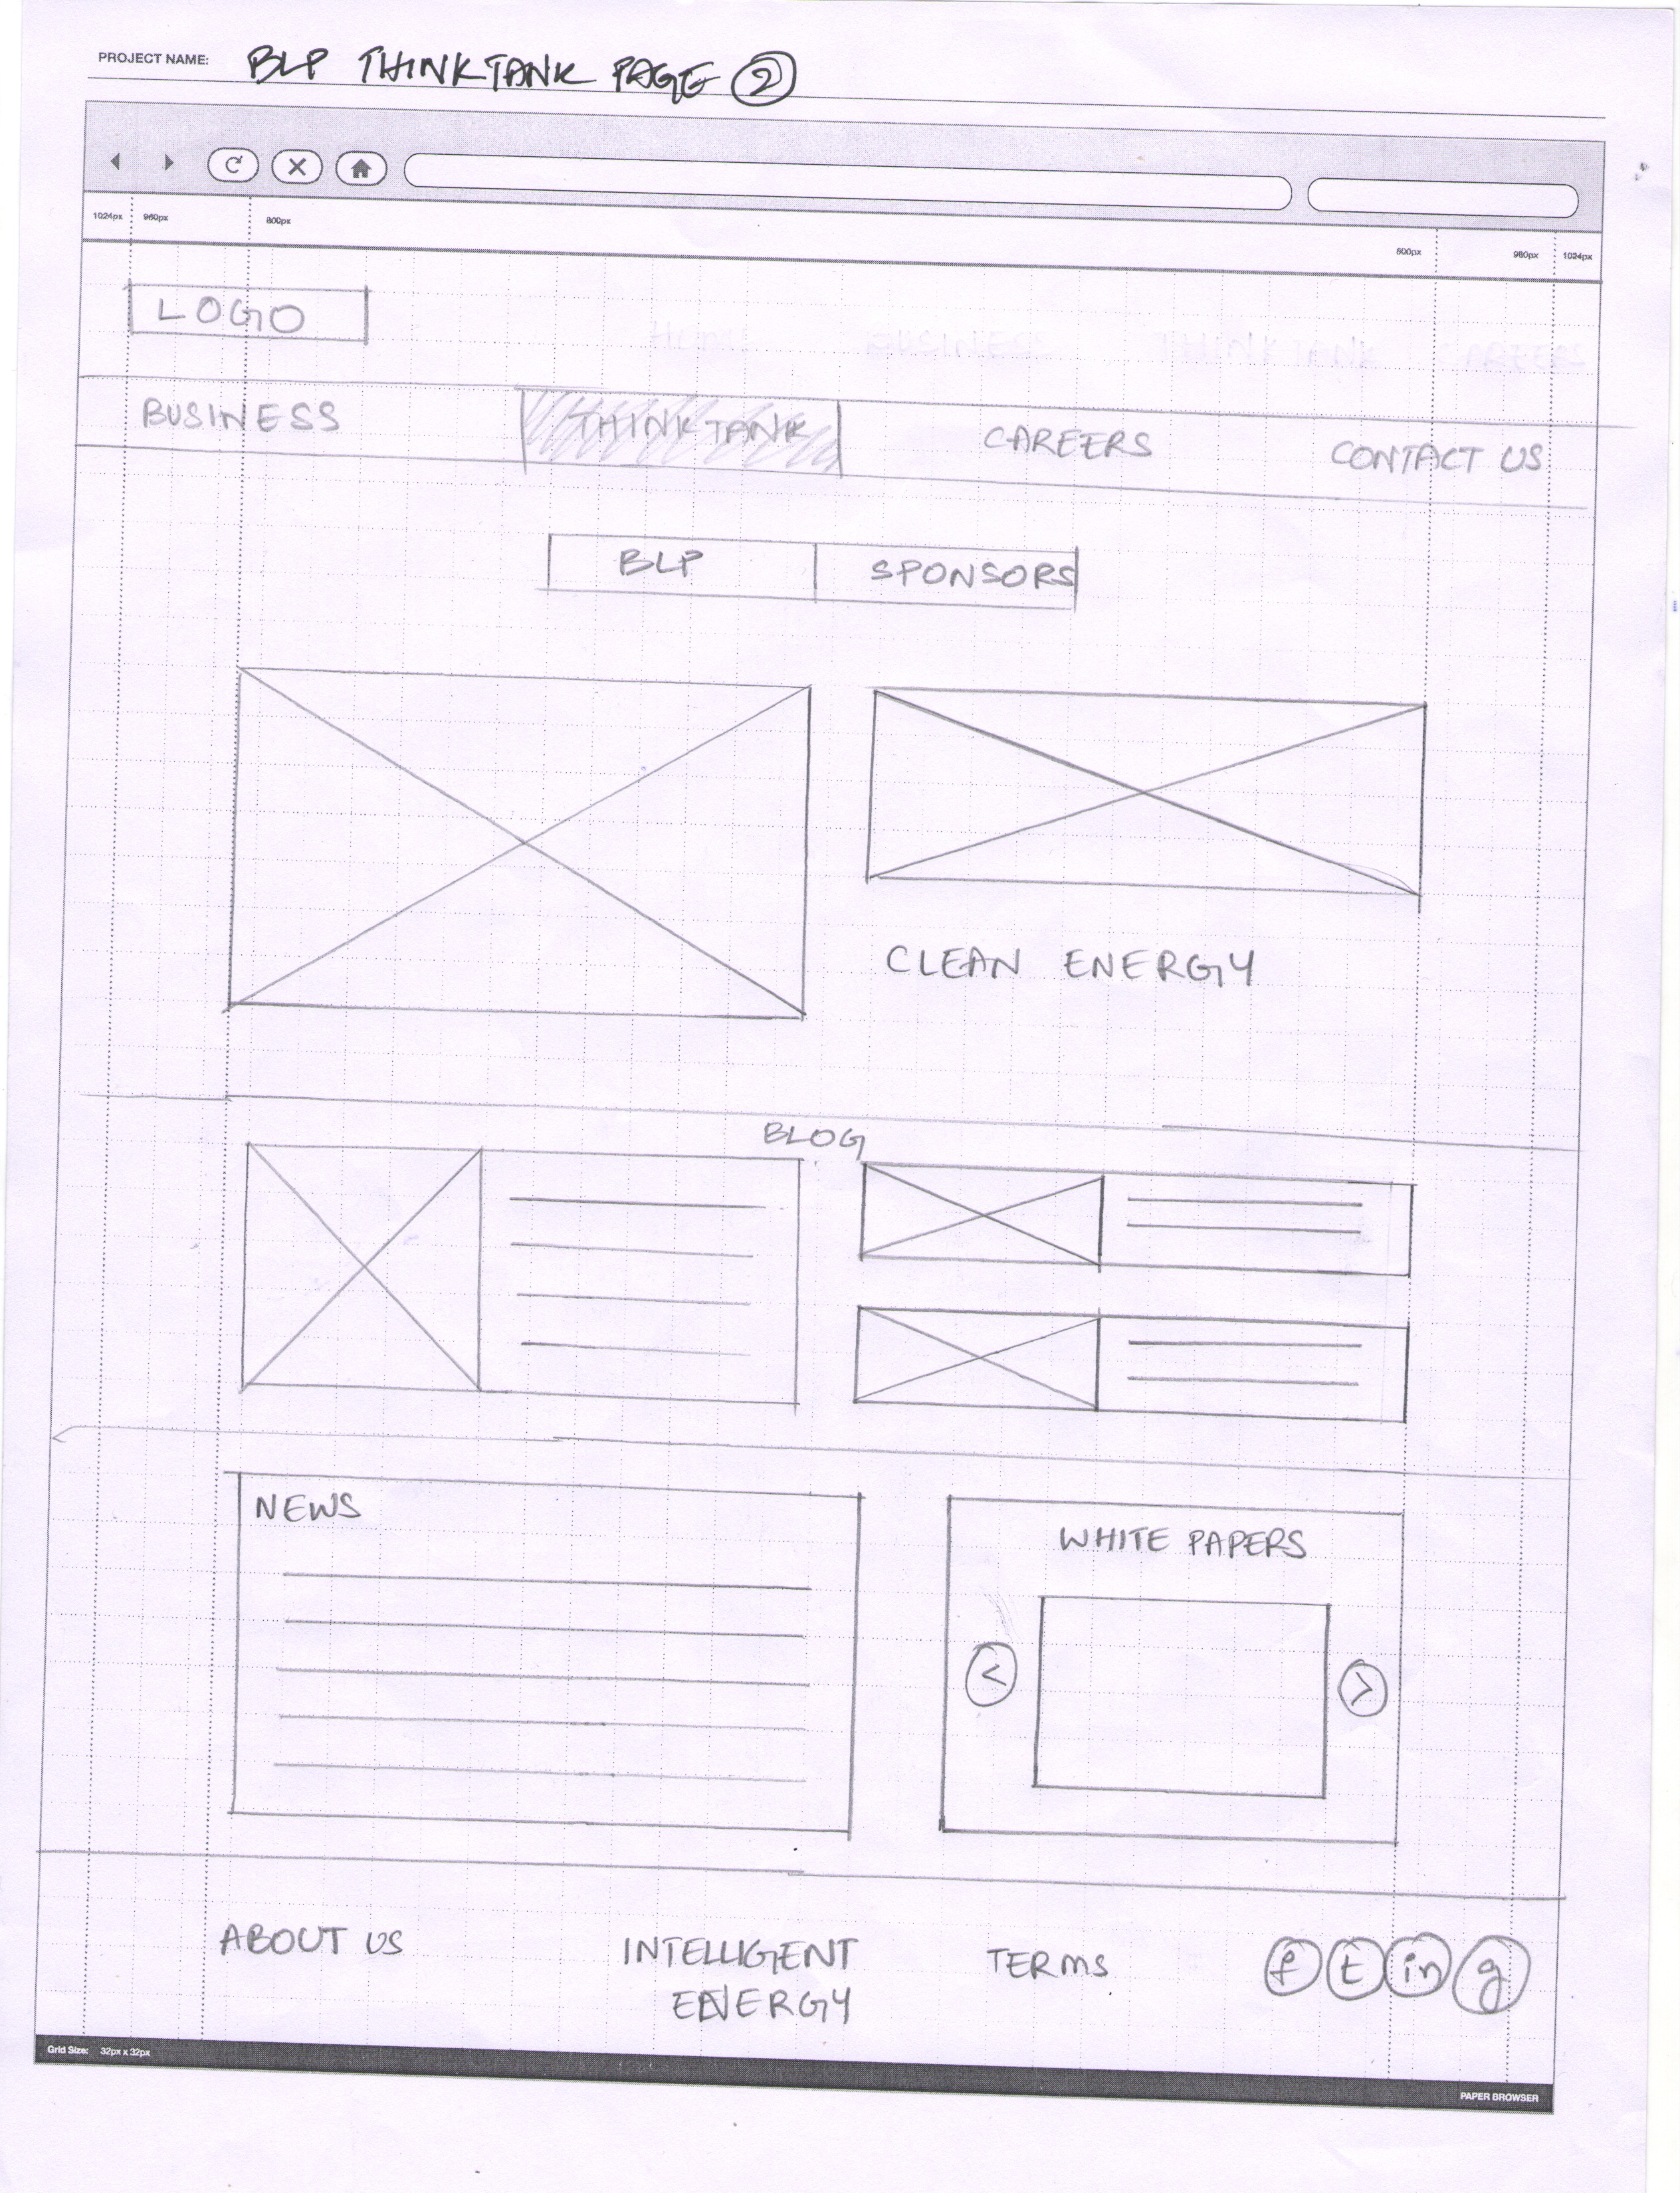 PROJECT NAME: BLP THINKTANK PAGE 2
1024px 960px 800px
800px 960px 1024px
LOGO
BUSINESS THINKTANK CAREERS CONTACT US
BLP SPONSORS
CLEAN ENERGY
BLOG
NEWS
WHITE PAPERS
< >
ABOUT US INTELLIGENT TERMS f t in g
ENERGY
Grid Size: 32px x 32px
PAPER BROWSER